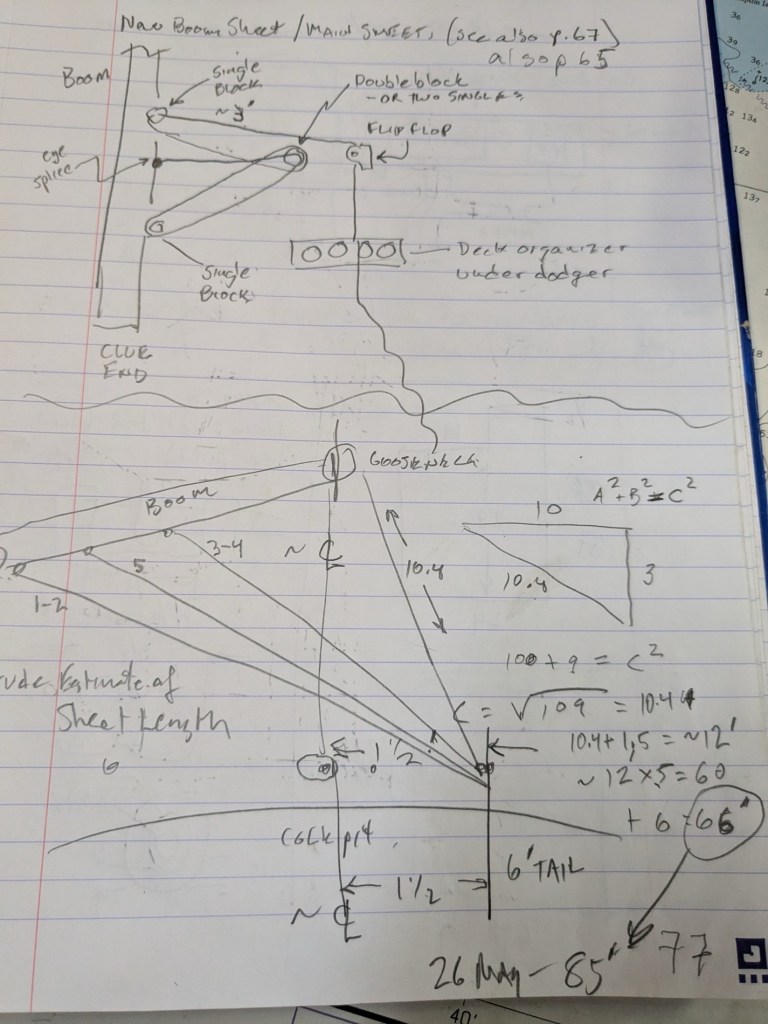 New Boom Sheet / MAIN SHEET, (See also p.67)
also p 65
Boom
Single
Block
~3'
Double block
- OR TWO SINGLES
FLIP FLOP
eye
splice
Single
Block
Deck organizer
under dodger
CLUE
END
GOOSENECK
Boom
3-4
5
1-2
~ ℄
10.4
A²+B²=C²
10
10.4
3
100 + 9 = C²
C = √109 = 10.44
10.4 + 1,5 = ~12'
~ 12 x 5 = 60
+ 6 = 66'
rude Estimate of
Sheet Length
1 1/2
Cockpit
1 1/2
6' TAIL
~ ℄
26 May - 85' 77
36
39
36
122
137
18
40'